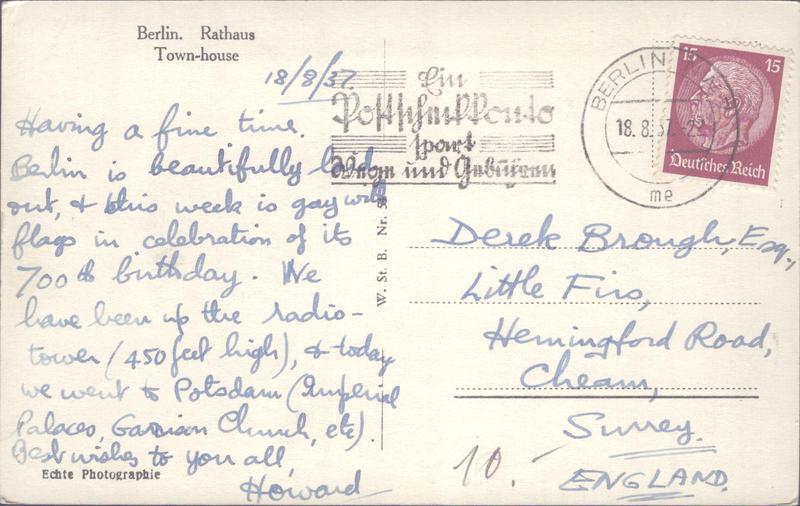 Berlin. Rathaus
Town-house
18/8/37.
Having a fine time.
Berlin is beautifully laid
out, & this week is gay with
flags in celebration of its
700th birthday. We
have been up the radio-
tower (450 feet high), & today
we went to Potsdam (Imperial
Palaces, Garrison Church, etc).
Best wishes to you all,
Howard
Echte Photographie
W. St. B. Nr.
Ein
Postscheckkonto
spart
Wege und Gebühren
BERLIN
18.8.37
me
15 15
Deutsches Reich
Derek Brough, Esq.,
Little Firs,
Hemingford Road,
Cheam,
Surrey.
ENGLAND.
10.-